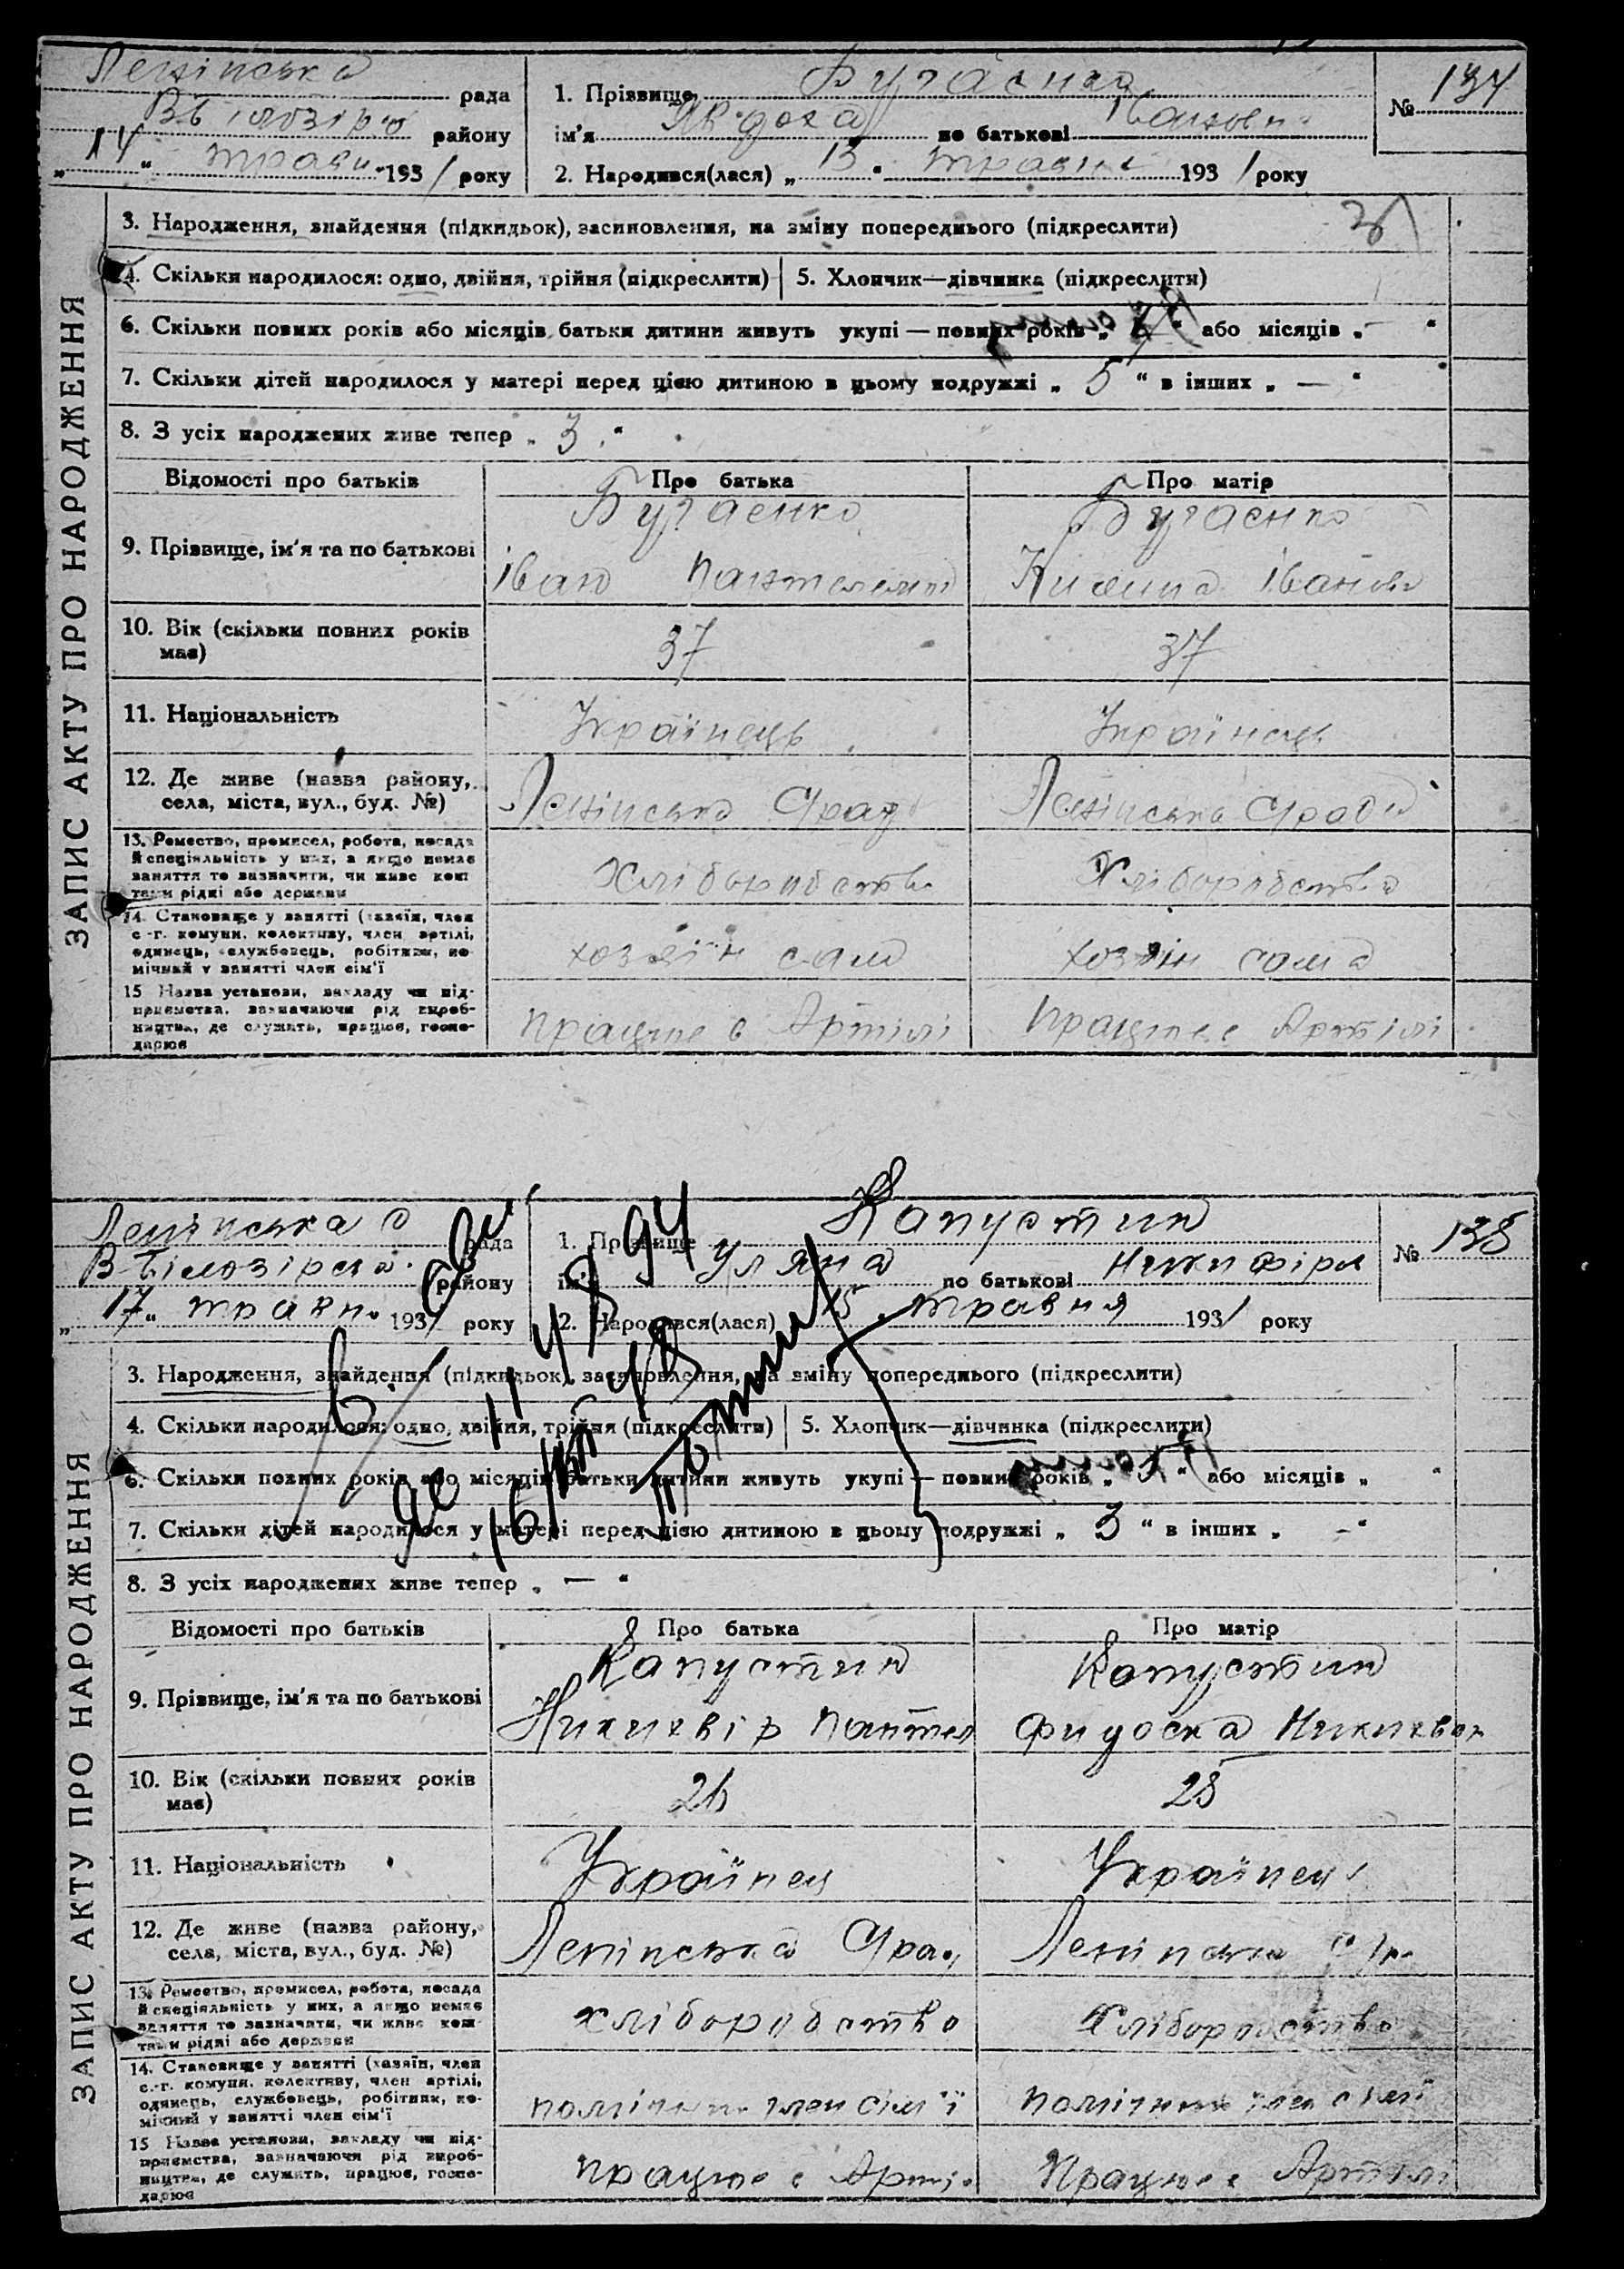 Ленінська рада
В Білозірсо району
„14“ травн 1931 року
1. Прізвище Бугаєнко
ім'я Явдоха по батькові Івановн
№ 137
2. Народився(лася) „13“ травня 1931 року
ЗАПИС АКТУ ПРО НАРОДЖЕННЯ
3. Народження, знайдення (підкидьок), засиновлення, на зміну попереднього (підкреслити)
4. Скільки народилося: одно, двійня, трійня (підкреслити) 5. Хлопчик—дівчинка (підкреслити)
6. Скільки повних років або місяців батьки дитини живуть укупі — повних років „ “ або місяців „—“
7. Скільки дітей народилося у матері перед цією дитиною в цьому подружжі „5“ в інших „—“
8. З усіх народжених живе тепер „3“
Відомості про батьків Про батька Про матір
9. Прізвище, ім'я та по батькові
Бугаєнко Бугаєнко
Іван Пантелемон Іванов
10. Вік (скільки повних років має)
37 37
11. Національність Українець Українець
12. Де живе (назва району, села, міста, вул., буд. №)
Ленінська Срад Ленінська Срада
13. Ремество, промисел, робота, посада
й спеціяльність у них, а якщо немає
заняття то зазначити, чи живе кош
тами рідні або держави
Хліборобство Хліборобство
14. Становище у занятті (хазяїн, член
с.-г. комуни, колективу, член артілі,
одинець, службовець, робітник, по-
мічний у занятті член сім'ї
хозяїн сам хозяїн сама
15 Назва установи, закладу чи під-
приємства, зазначаючи рід вироб-
ництва, де служить, працює, госпо-
дарює
працює в Артілі працює в Артілі
Ленінська с рада
В Білозірса району
„17“ травн 1931 року
1. Прізвище Капустин
ім'я Уляна по батькові Никифірл
№ 138
2. Народився(лася) 15 травня 1931 року
ЗАПИС АКТУ ПРО НАРОДЖЕННЯ
3. Народження, знайдення (підкидьок), засиновлення, на зміну попереднього (підкреслити)
4. Скільки народилося: одно, двійня, трійня (підкреслити) 5. Хлопчик—дівчинка (підкреслити)
6. Скільки повних років або місяців батьки дитини живуть укупі — повних років „5“ або місяців „ “
7. Скільки дітей народилося у матері перед цією дитиною в цьому подружжі „3“ в інших „—“
8. З усіх народжених живе тепер „—“
Відомості про батьків Про батька Про матір
9. Прізвище, ім'я та по батькові
Капустин Капустин
Никихвір Пантел Фидоска Никихвор
10. Вік (скільки повних років має)
26 25
11. Національність Українец Українец
12. Де живе (назва району, села, міста, вул., буд. №)
Ленінська Срад Ленінська
13. Ремество, промисел, робота, посада
й спеціяльність у них, а якщо немає
заняття то зазначити, чи живе кош-
тами рідні або держави
хліборобство Хліборобство
14. Становище у занятті (хазяїн, член
с.-г. комуни, колективу, член артілі,
одинець, службовець, робітник, по-
мічний у занятті член сім'ї
помічник член сім'ї помічник член сімї
15 Назва установи, закладу чи під-
приємства, зазначаючи рід вироб-
ництва, де служить, працює, госпо-
дарює
працює в Артіл Працює в Артілі